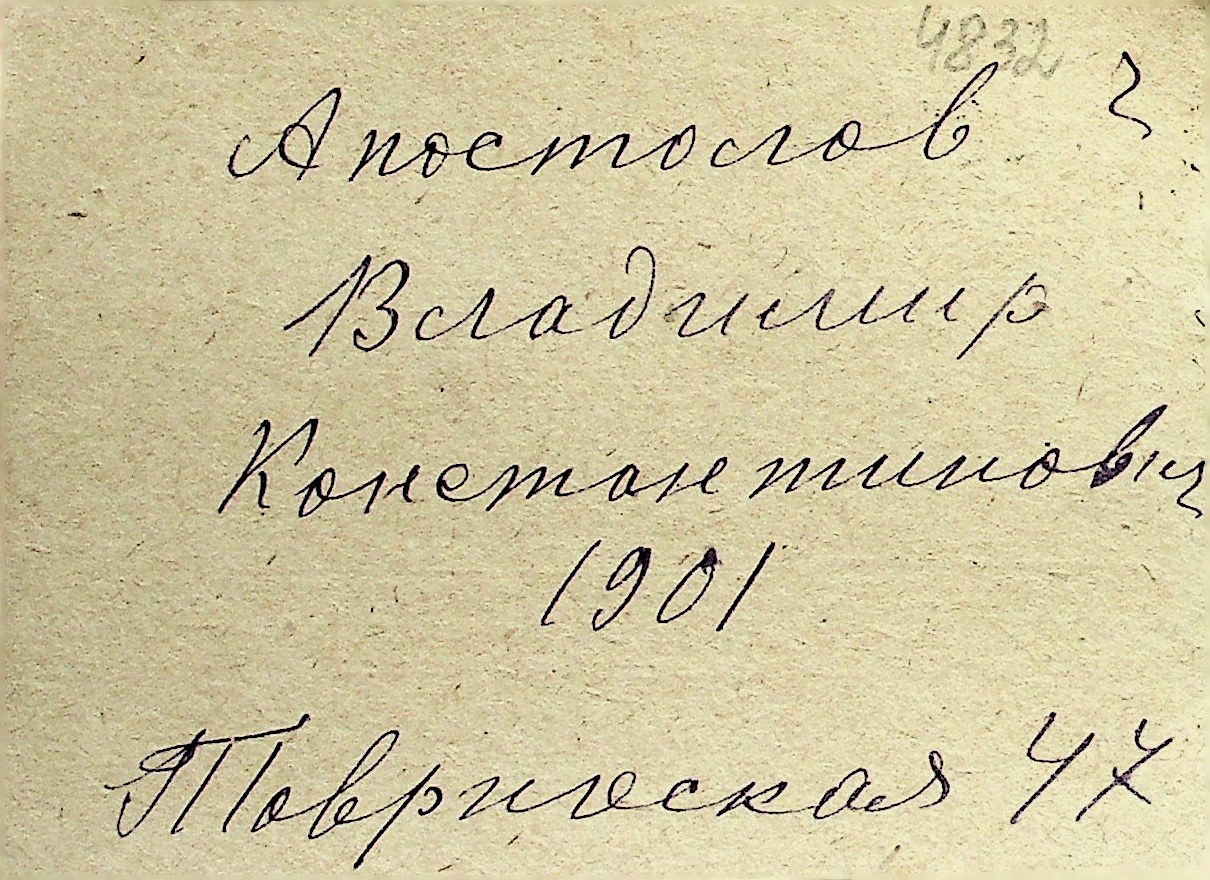 4832
Апостолов ч
Владимир
Константинович
1901
Таврическая 47